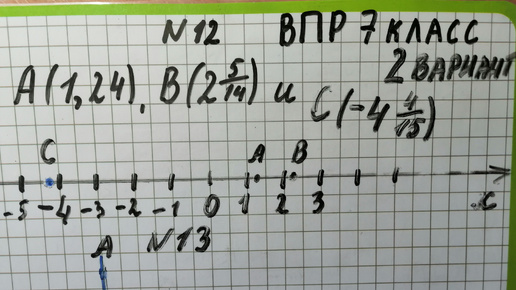 N12 ВПР 7 КЛАСС
2 ВАРИАНТ
A(1,24), B(2 5/14) и C(-4 4/15)
C A B
-5 -4 -3 -2 -1 0 1 2 3 x
A N13